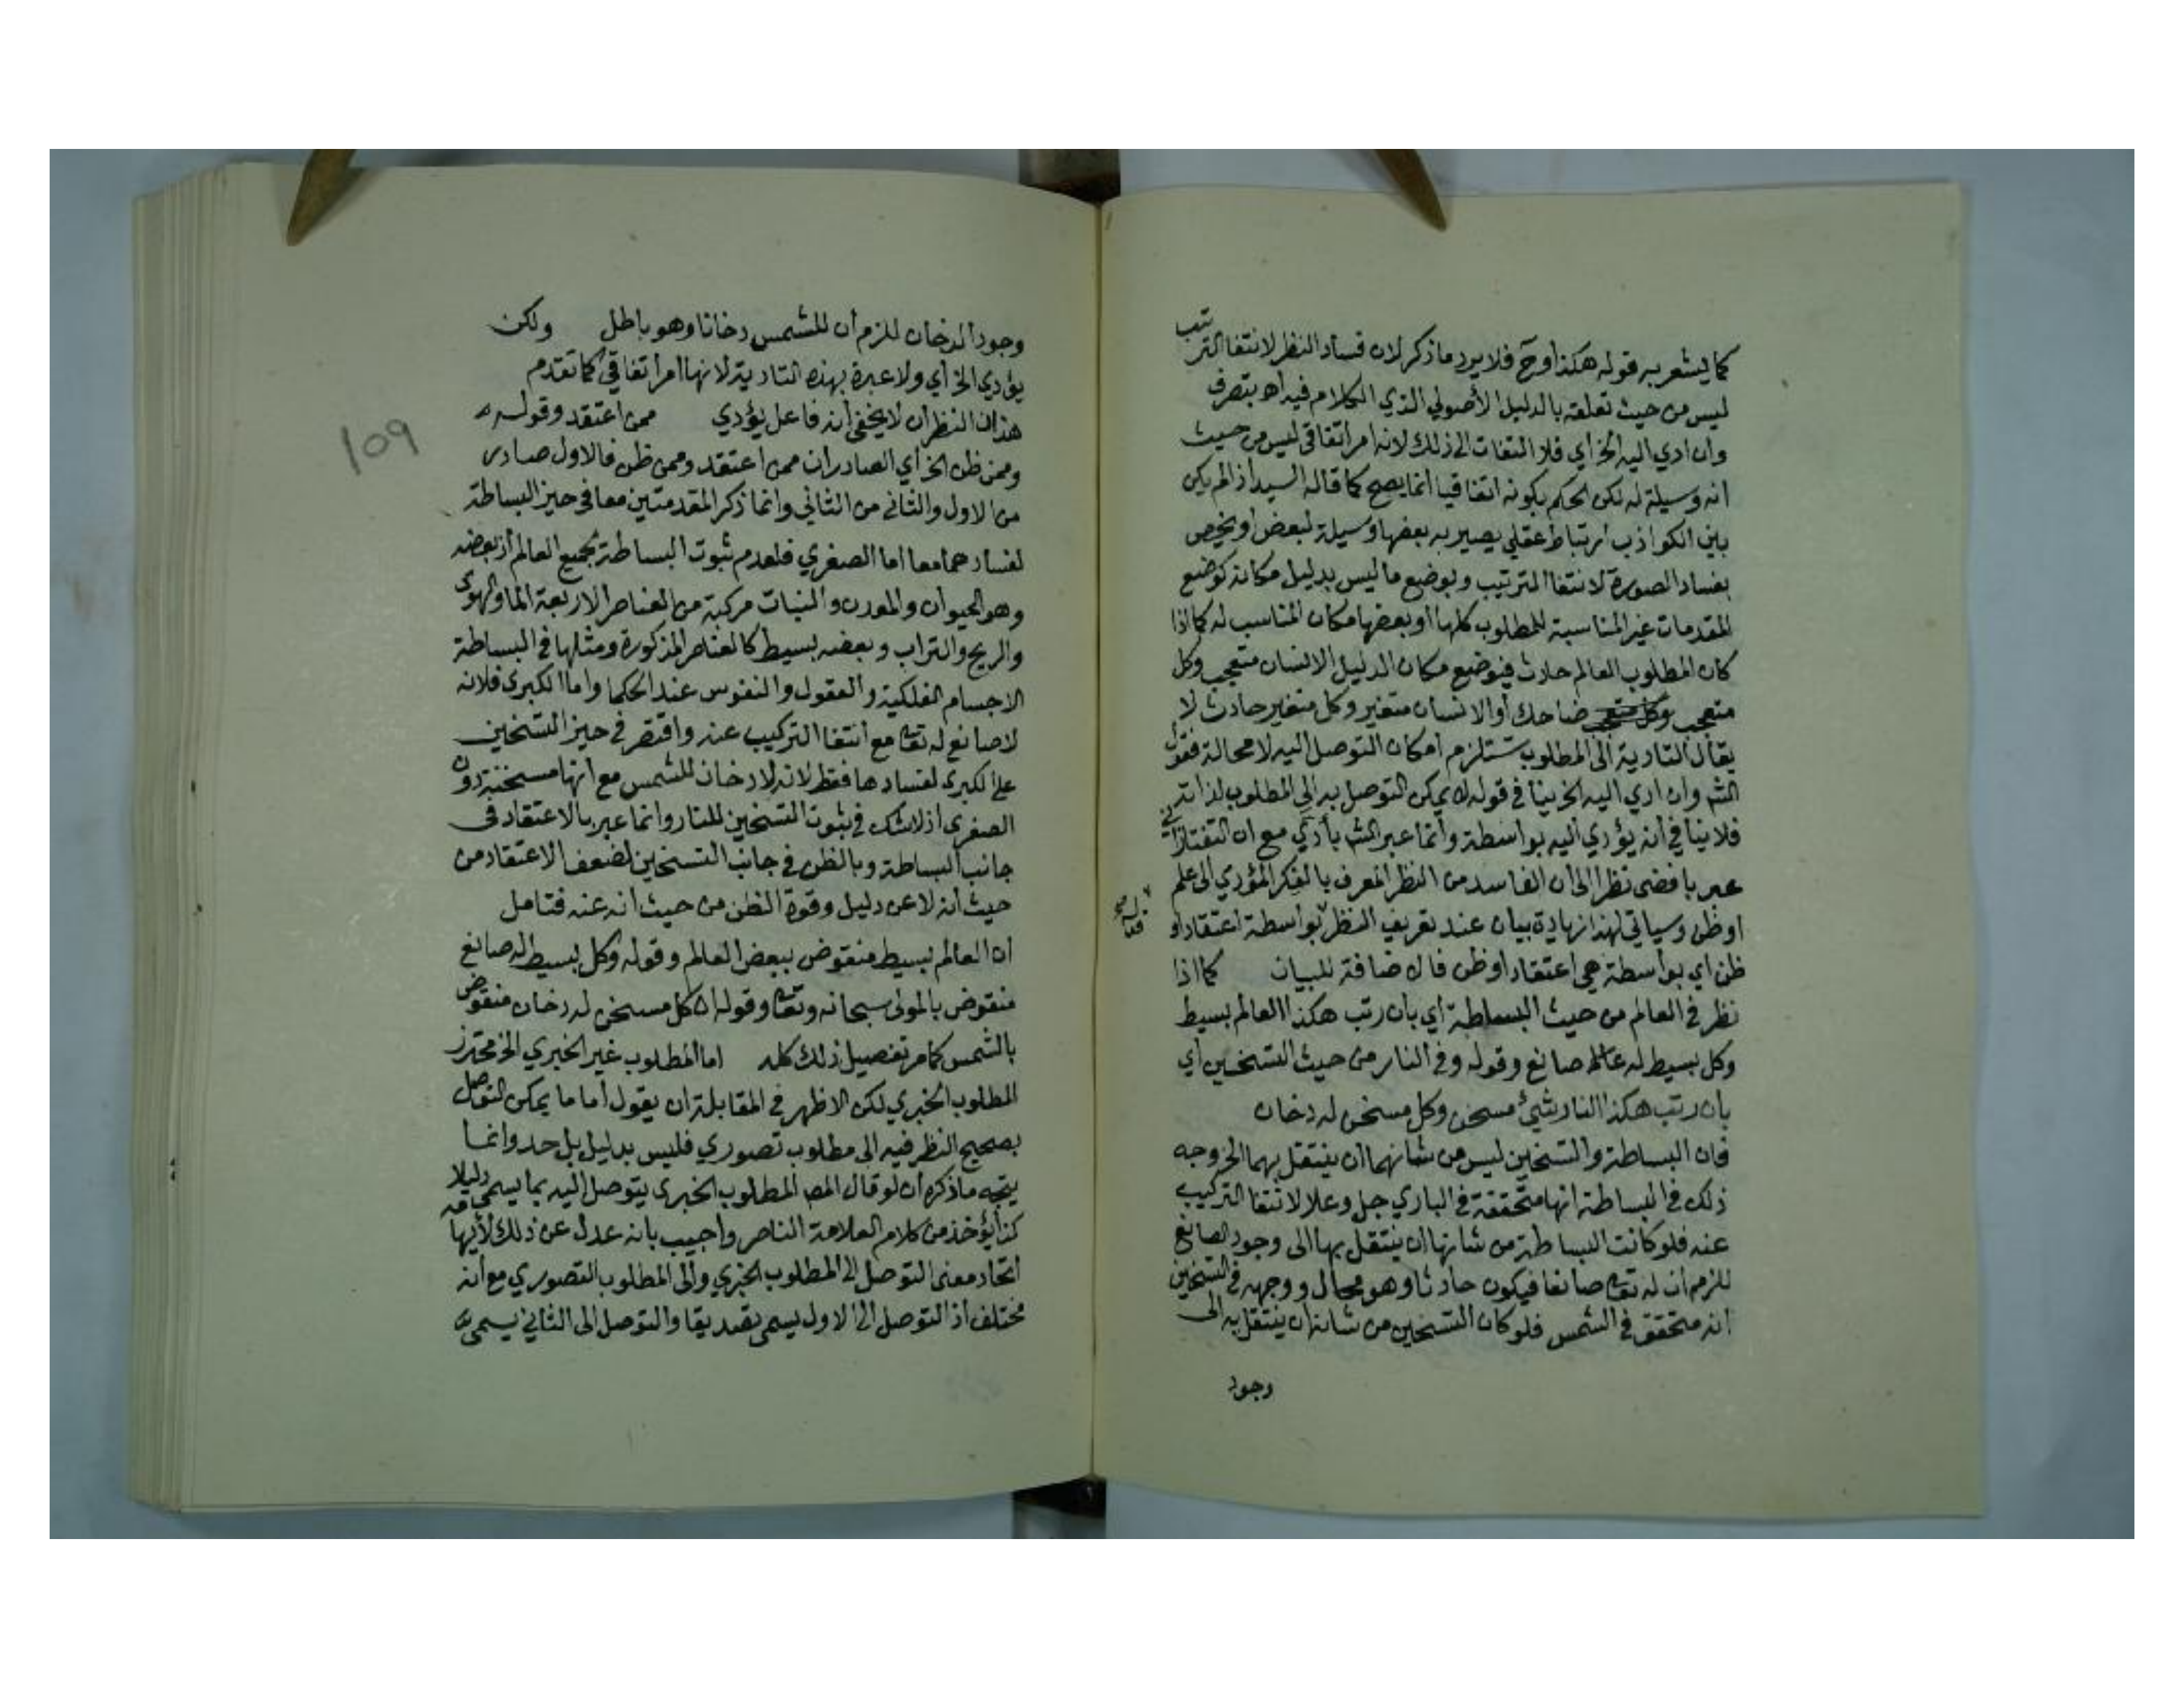 كما يشعر به قوله هكذا وح فلا يرد ما ذكر لان فساد النظر لانتفا الترتيب
ليس من حيث تعلقه بالدليل الأصولي الذي الكلام فيه اه بتصرف
وان ادي اليه الخ اي فلا التفات الى ذلك لانه امر اتفاقي ليس من حيث
انه وسيلة له لكن الحكم بكونه اتفاقيا انما يصح كما قاله السيد اذا لم يكن
بين الكواذب ارتباط عقلي يصير به بعضها وسيلة لبعض او يخص
بفساد الصورة لانتفا الترتيب وبوضع ما ليس بدليل مكانه كوضع
المقدمات غير المناسبة للمطلوب كلها او بعضها مكان المناسب له كما اذا
كان المطلوب العالم حادث فيوضع مكان الدليل الانسان متعجب وكل
متعجب ضاحك أو الانسان متغير وكل متغير حادث لا
يقال التادية الى المطلوب تستلزم امكان التوصل اليه لا محالة فقول
الش وان ادي اليه الخ ينافي قوله لا يمكن التوصل به الى المطلوب لذاته
فلا ينافي أنه يؤدي اليه بواسطة وانما عبر الش بأدي مع ان التفتازاني
عبر بافضى نظرا الى ان الفاسد من النظر المعرف بالفكر المؤدي الى علم
او ظن وسياتي لهذا زيادة بيان عند تعريف النظر بواسطة اعتقاد او
ظن اي بواسطة هي اعتقاد او ظن فالاضافة للبيان كما اذا
نظر في العالم من حيث البساطة اي بان رتب هكذا العالم بسيط
وكل بسيط له صانع وقوله وفي النار من حيث التسخين أي
بان رتب هكذا النار شيئ مسخن وكل مسخن له دخان
فان البساطة والتسخين ليس من شانهما ان ينتقل بهما الخ وجه
ذلك في البساطة انها متحققة في الباري جل وعلا لانتفا التركيب
عنه فلو كانت البساطة من شانها ان ينتقل بها الى وجود الصانع
للزم ان له تعا صانعا فيكون حادثا وهو محال ووجهه في التسخين
انه متحقق في الشمس فلو كان التسخين من شانه ان ينتقل به الى
وجود
وجود الدخان للزم أن للشمس دخانا وهو باطل ولكن
يؤدي الخ أي ولا عبرة بهذه التادية لانها امر اتفاقي كما تقدم
هذان النظران لا يخفى أنه فاعل يؤدي ممن اعتقد وقوله
وممن ظن الخ أي الصادران ممن اعتقد وممن ظن فالاول صادر
من الاول والثاني من الثاني وانما ذكر المقدمتين معا في حيز البساطة
لفسادهما معا اما الصغري فلعدم ثبوت البساطة لجميع العالم اذ بعضه
وهو الحيوان والمعدن والنبات مركبة من العناصر الاربعة الما والهوى
والريح والتراب وبعضه بسيط كالعناصر المذكورة ومثلها في البساطة
الاجسام الفلكية والعقول والنفوس عند الحكما واما الكبرى فلانه
لا صانع له تعا مع انتفا التركيب عنه واقتصر في حيز التسخين
على الكبرى لفسادها فقط لانه لا دخان للشمس مع انها مسخنة دون
الصغرى اذ لا شك في ثبوت التسخين للنار وانما عبر بالاعتقاد في
جانب البساطة وبالظن في جانب التسخين لضعف الاعتقاد من
حيث انه لا عن دليل وقوة الظن من حيث انه عنه فتامل
ان العالم بسيط منقوض ببعض العالم وقوله وكل بسيط له صانع
منقوض بالمولى سبحانه وتعا وقوله ان كل مسخن له دخان منقوض
بالشمس كما مر تفصيل ذلك كله اما المطلوب غير الخبري الخ محترز
المطلوب الخبري لكن الاظهر في المقابلة ان يقول اما ما يمكن التوصل
بصحيح النظر فيه الى مطلوب تصوري فليس بدليل بل حد وانما
يتجه ما ذكره ان لو قال المص المطلوب الخبري يتوصل اليه بما يسمى دليلا
كذا يؤخذ من كلام العلامة الناصر واجيب بانه عدل عن ذلك لأيهامه
اتحاد معنى التوصل الى المطلوب الخبري والى المطلوب التصوري مع أنه
مختلف اذ التوصل الى الاول يسمى تصديقا والتوصل الى الثاني يسمى
109